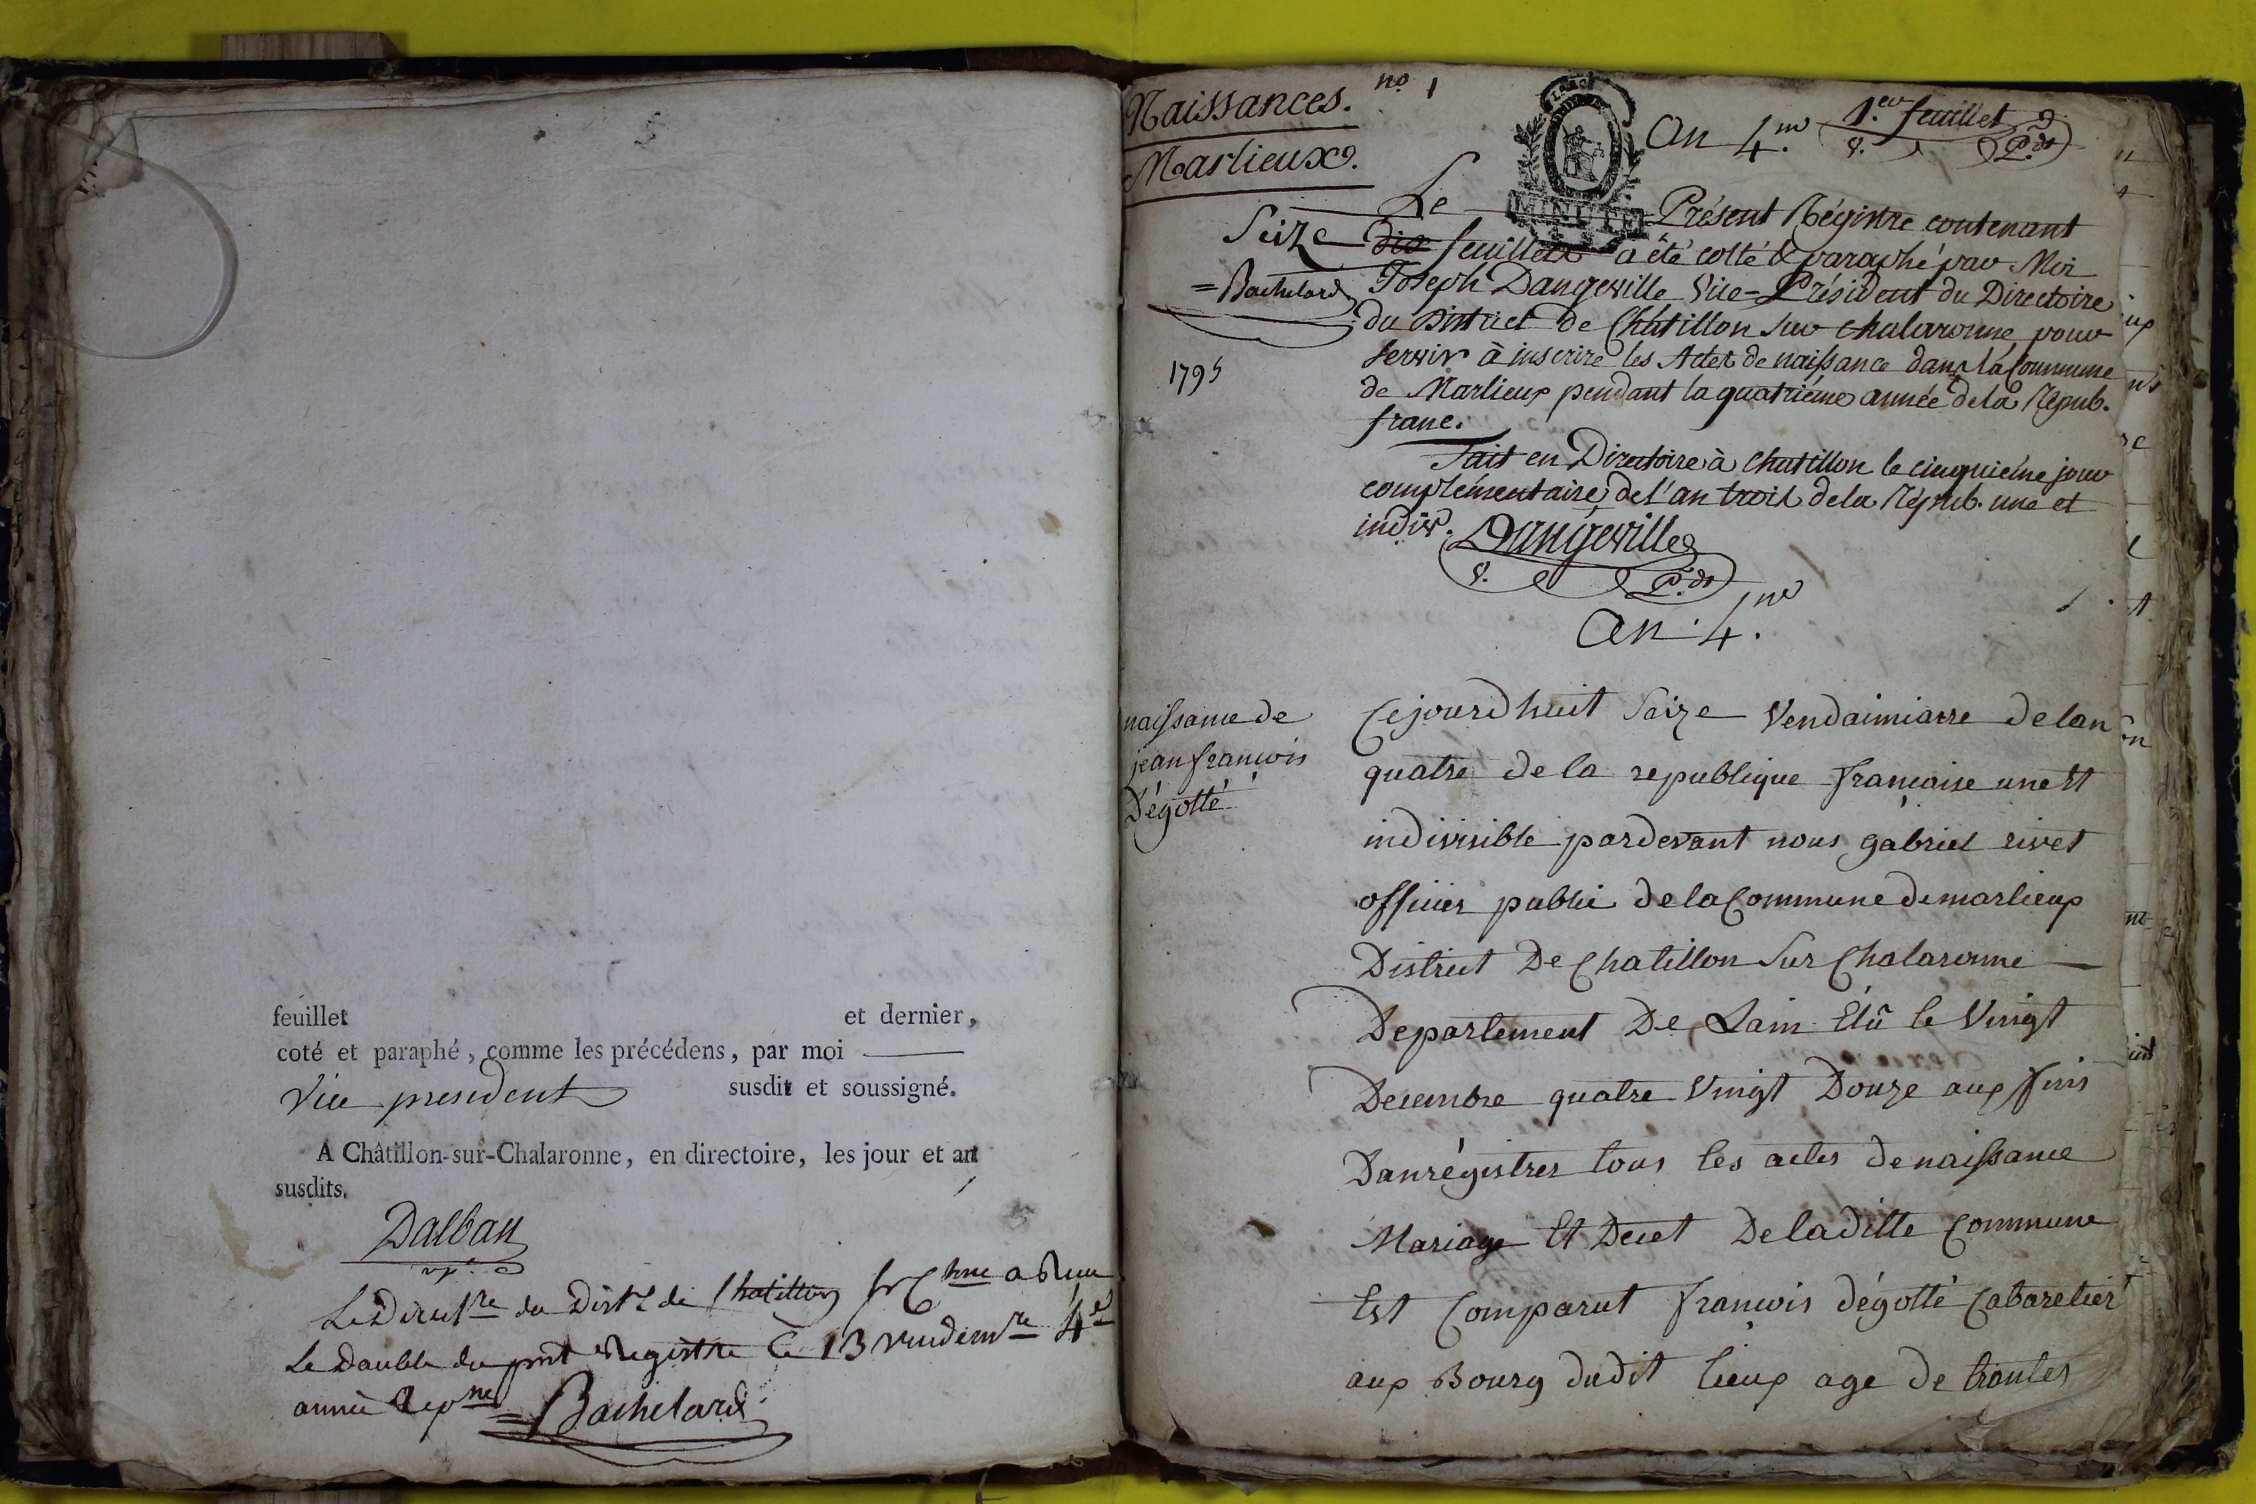 feuillet et dernier,
coté et paraphé, comme les précédens, par moi
Vice president susdit et soussigné.
A Châtillon-sur-Chalaronne, en directoire, les jour et an
susdits.
Dalban
vp.
Le Direct.re du Dist.t de Chatillon sr Ch.nne a Reçu
Le Double du pnt Registre le 13 vendem.re 4.e
année Rep.ne
=Bachelard
Naissances. no 1
Marlieux.
MINUTE
An 4.me
1.er feuillet
v. P.dt
Le Présent Régistre contenant
Seize dix feuillets a été cotté & paraphé par Moi
=Bachelard
Joseph Dangeville Vice-Président du Directoire
du District de Châtillon sur chalaronne pour
1795
servir à inscrire les Actes de naissance dans la Commune
de Marlieux pendant la quatriéme année de la Répub.
franc.
Fait en Directoire à Chatillon le cinquiéme jour
complémentaire de l'an trois de la Répub. une et
indiv. Dangeville
v. P.dt
An 4.me
naissance de
jean françois
Dégotté
Cejourdhuit Saize Vendaimiaire de lan
quatre de la republique française une Et
indivisible pardevant nous gabriel rivet
officier public de la Commune de marlieux
District De Chatillon Sur Chalaronne
Departement De Lain Élû le Vingt
Decembre quatre Vingt Douze aux fins
Danrégistrer tous les actes de naissance
Mariage Et Decet De la ditte Commune
Est Comparut francois dégotté Cabaretier
aux Bourg dudit lieux age de trantes